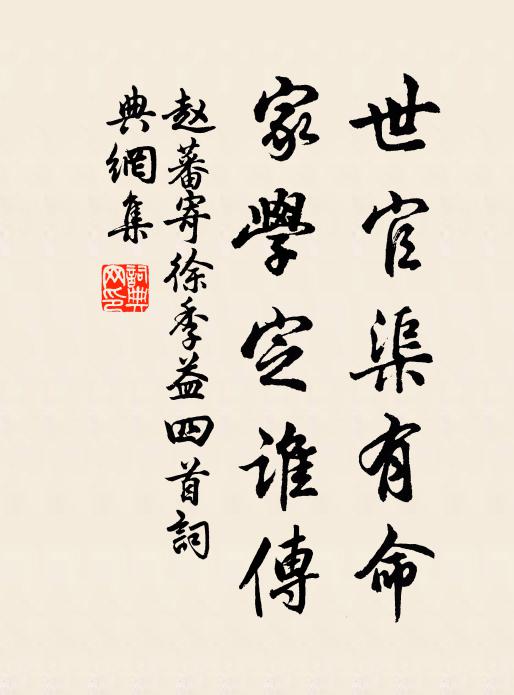 世官渠有命
家學定誰傳
赵蕃寄徐季益四首詞
典網集
詞典網印